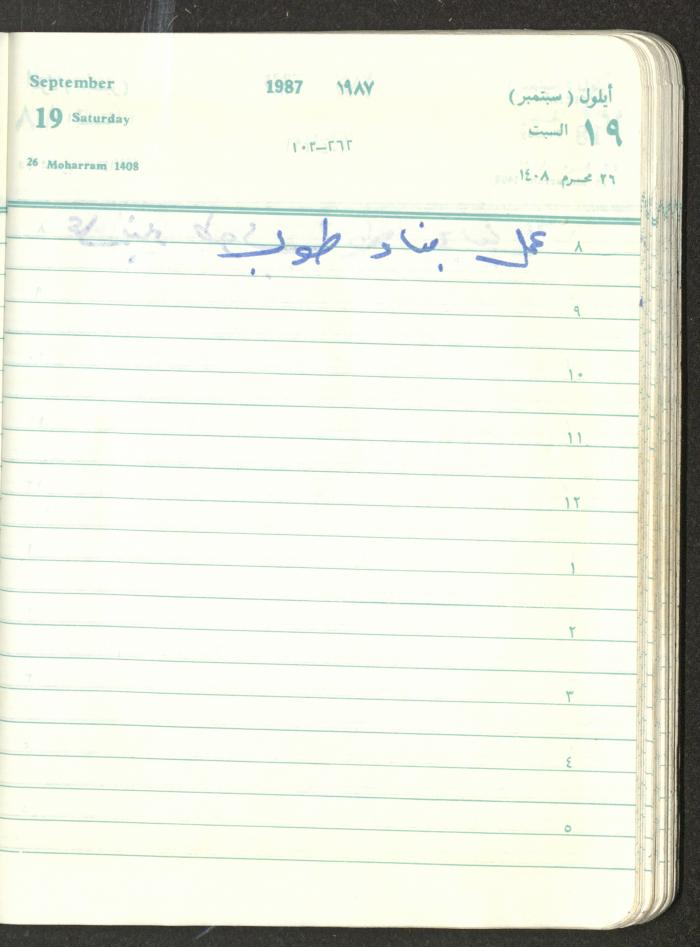 September 1987 ١٩٨٧ أيلول (سبتمبر)
19 Saturday ١٩ السبت
٢٦٢–١٠٣
26 Moharram 1408 ٢٦ محرم ١٤٠٨
٨ عمل بناء طوب
٩
١٠
١١
١٢
١
٢
٣
٤
٥